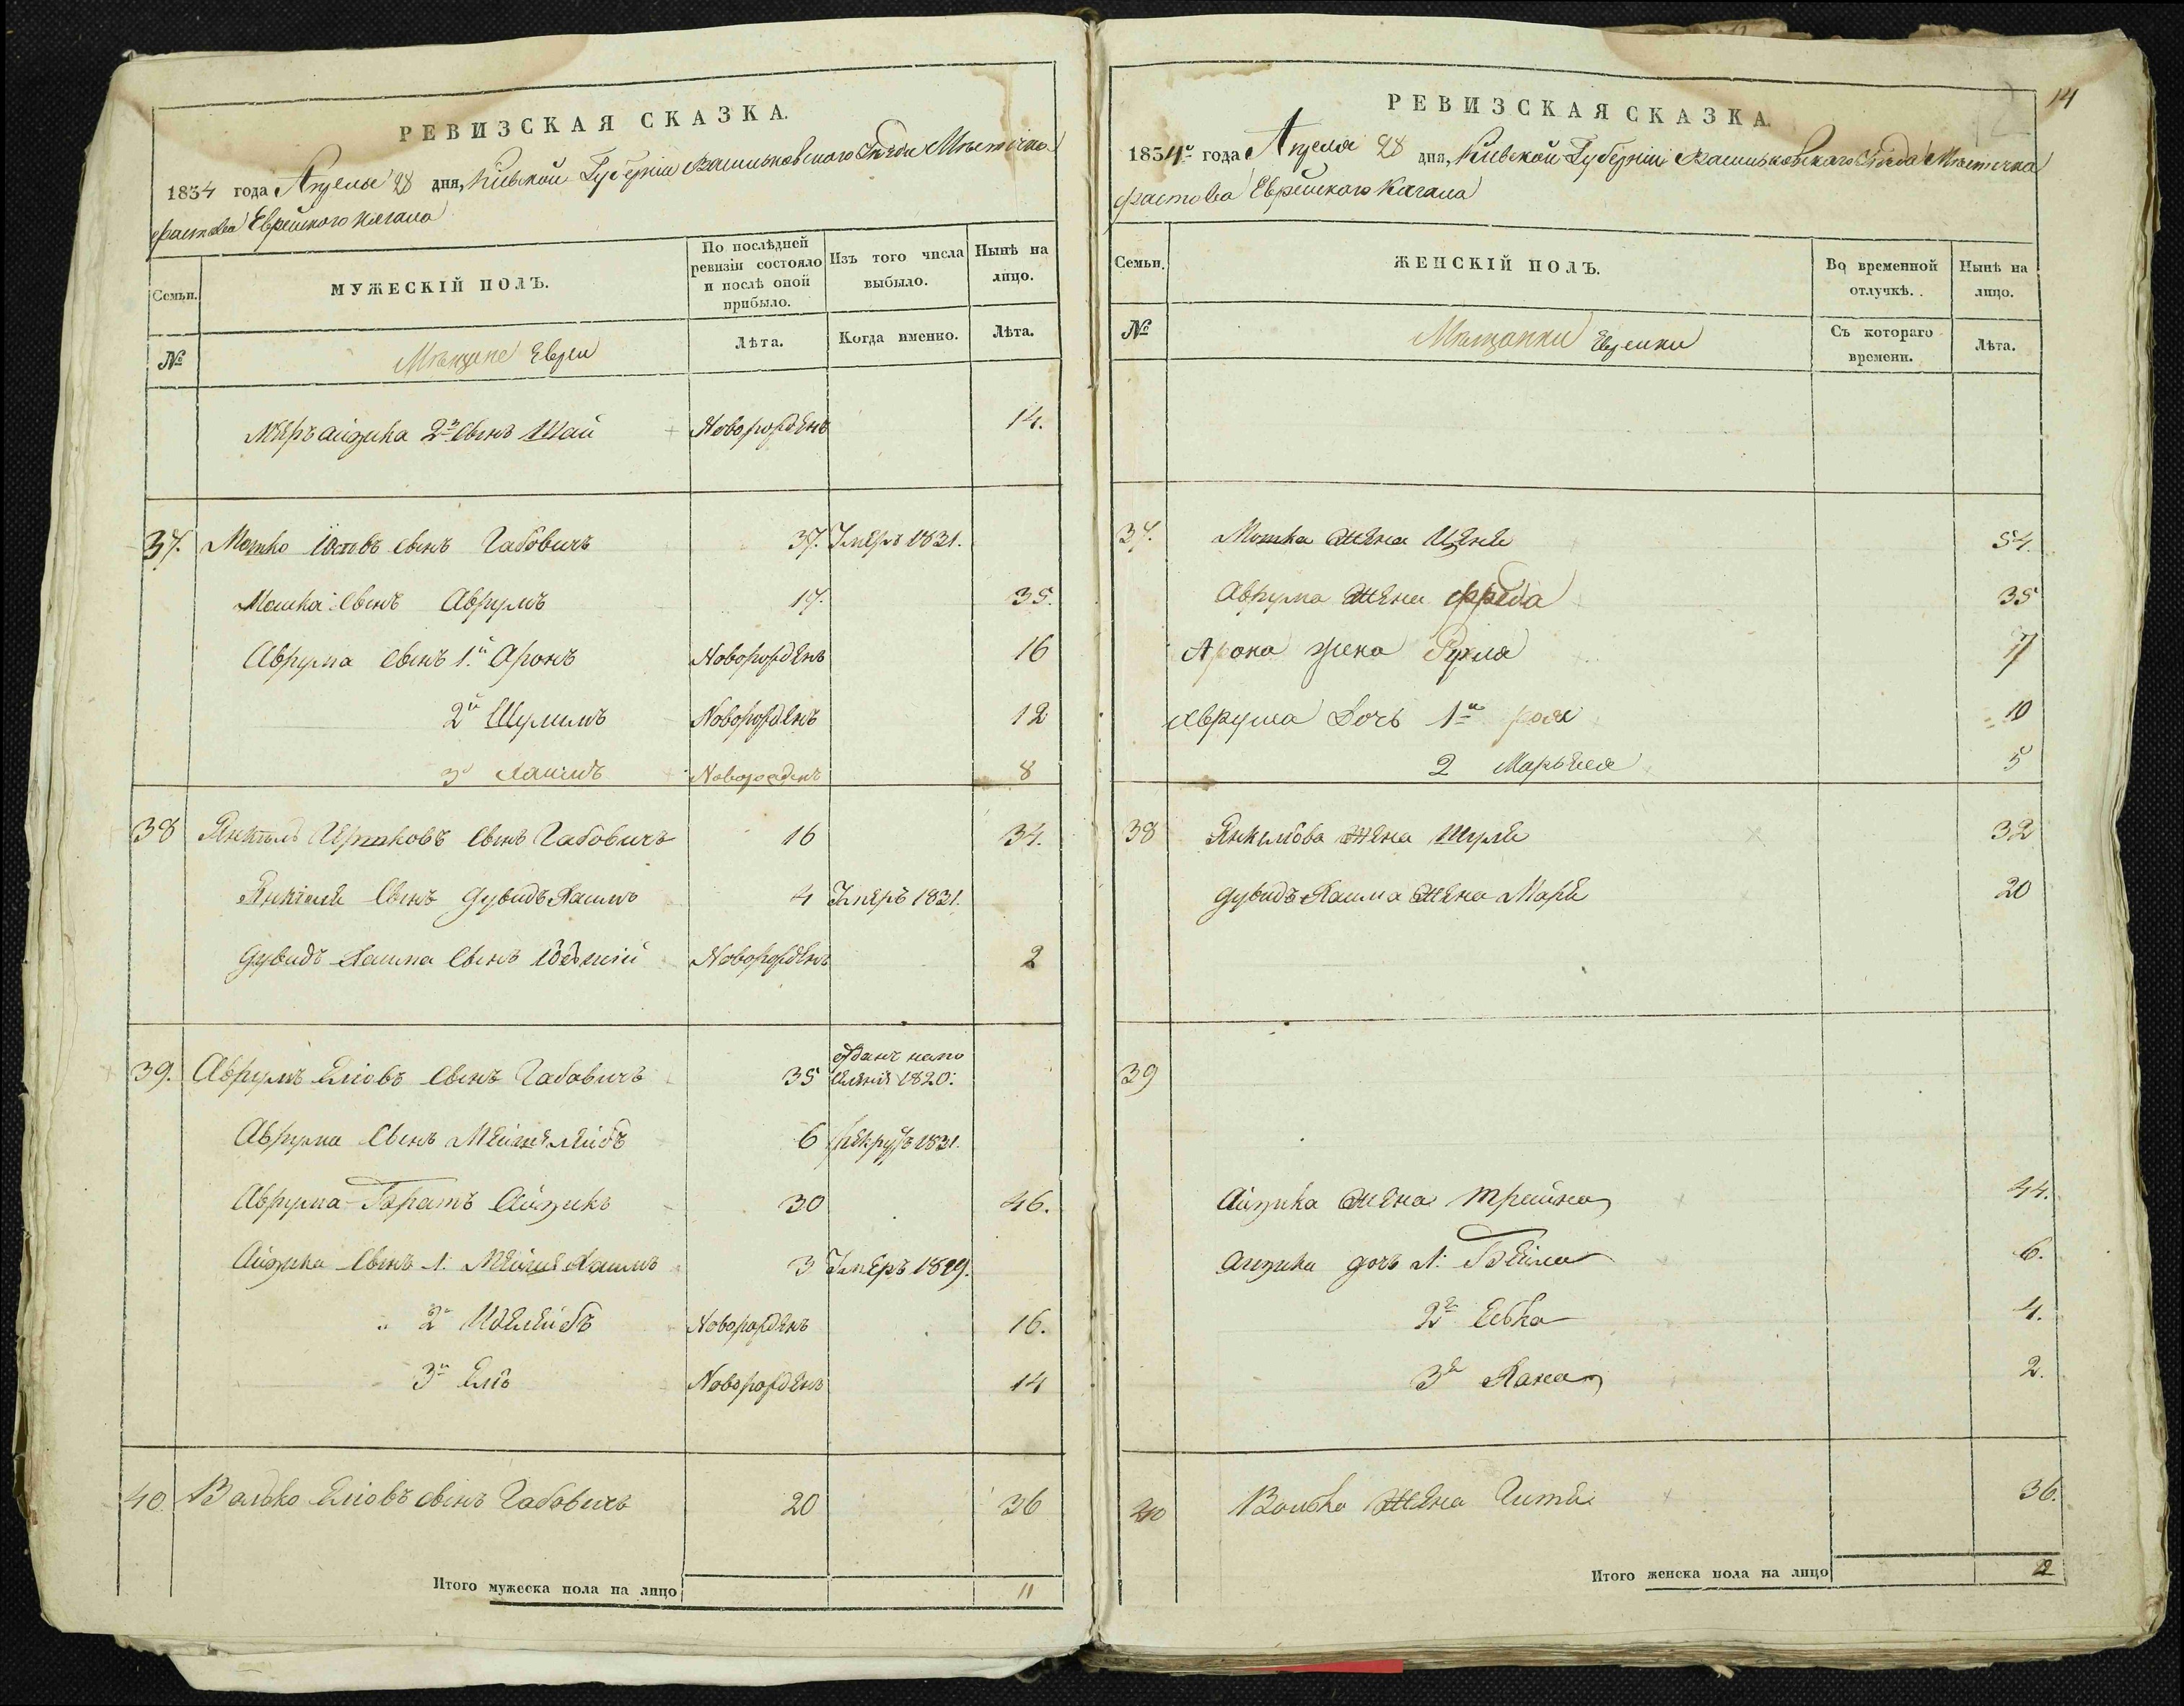 РЕВИЗСКАЯ СКАЗКА.
1834 года Апреля 28 дня, Кіевской Губерніи Васильковского Уезда Местечка
Фастова Еврейского Кагала
Семьи.
МУЖЕСКІЙ ПОЛЪ.
По послѣдней ревизіи состояло и послѣ оной прибыло.
Изъ того числа выбыло.
Нынѣ на лицо.
№
Мещане Евреи
Лѣта.
Когда именно.
Лѣта.
Меръ Айзика 2й Сынъ Шай Новорожденъ 14.
37. Мошко сынъ Габовичъ 37. Умеръ 1831.
Мошка Сынъ Аврумъ 17. 35.
Аврума Сынъ 1.й Аронъ Новорожденъ 16
2й Шулимъ Новорожденъ 12
3й Хаимъ Новорожденъ 8
38 Янкель Сынъ Габовичъ 16 34.
Янкеля Сынъ Дувидъ Хаимъ 4 Умеръ 1831.
Дувидъ Хаима Сынъ Новорожденъ 2
39. Аврумъ Еліовъ Сынъ Габовичъ 35 1820.
Аврума Сынъ Мейше Лейбъ 6 рекрутъ 1831.
Аврума Братъ Айзикъ 30 46.
Айзика Сынъ 1. Хаимъ 3 Умеръ 1829.
2й Иделейбъ Новорожденъ 16.
3й Еліо Новорожденъ 14
40. Волько Еліовъ сынъ Габовичъ 20 36
Итого мужеска пола на лицо 11
14
РЕВИЗСКАЯ СКАЗКА.
1834го года Апреля 28 дня, Кіевской Губерніи Васильковскаго Уезда Местечка
Фастова Еврейскаго Кагала
Семьи.
ЖЕНСКІЙ ПОЛЪ.
Во временной отлучкѣ.
Нынѣ на лицо.
№
Мещанки Еврейки
Съ котораго времени.
Лѣта.
37. Мошка Жена 54.
Аврума Жена Фрейда 35
Арона жена Рухля 17
Аврума Дочь 1я 10
2 Марьяся 5
38 Янкелова Жена Шурля 32
Дувидъ Хаима Жена Маря 20
39
Айзика Жена Трейна 44.
Айзика дочь 1. Бейла 6.
2я 4.
3я Хана 2.
40 Волька Жена Гитля 36.
Итого женска пола на лицо 12